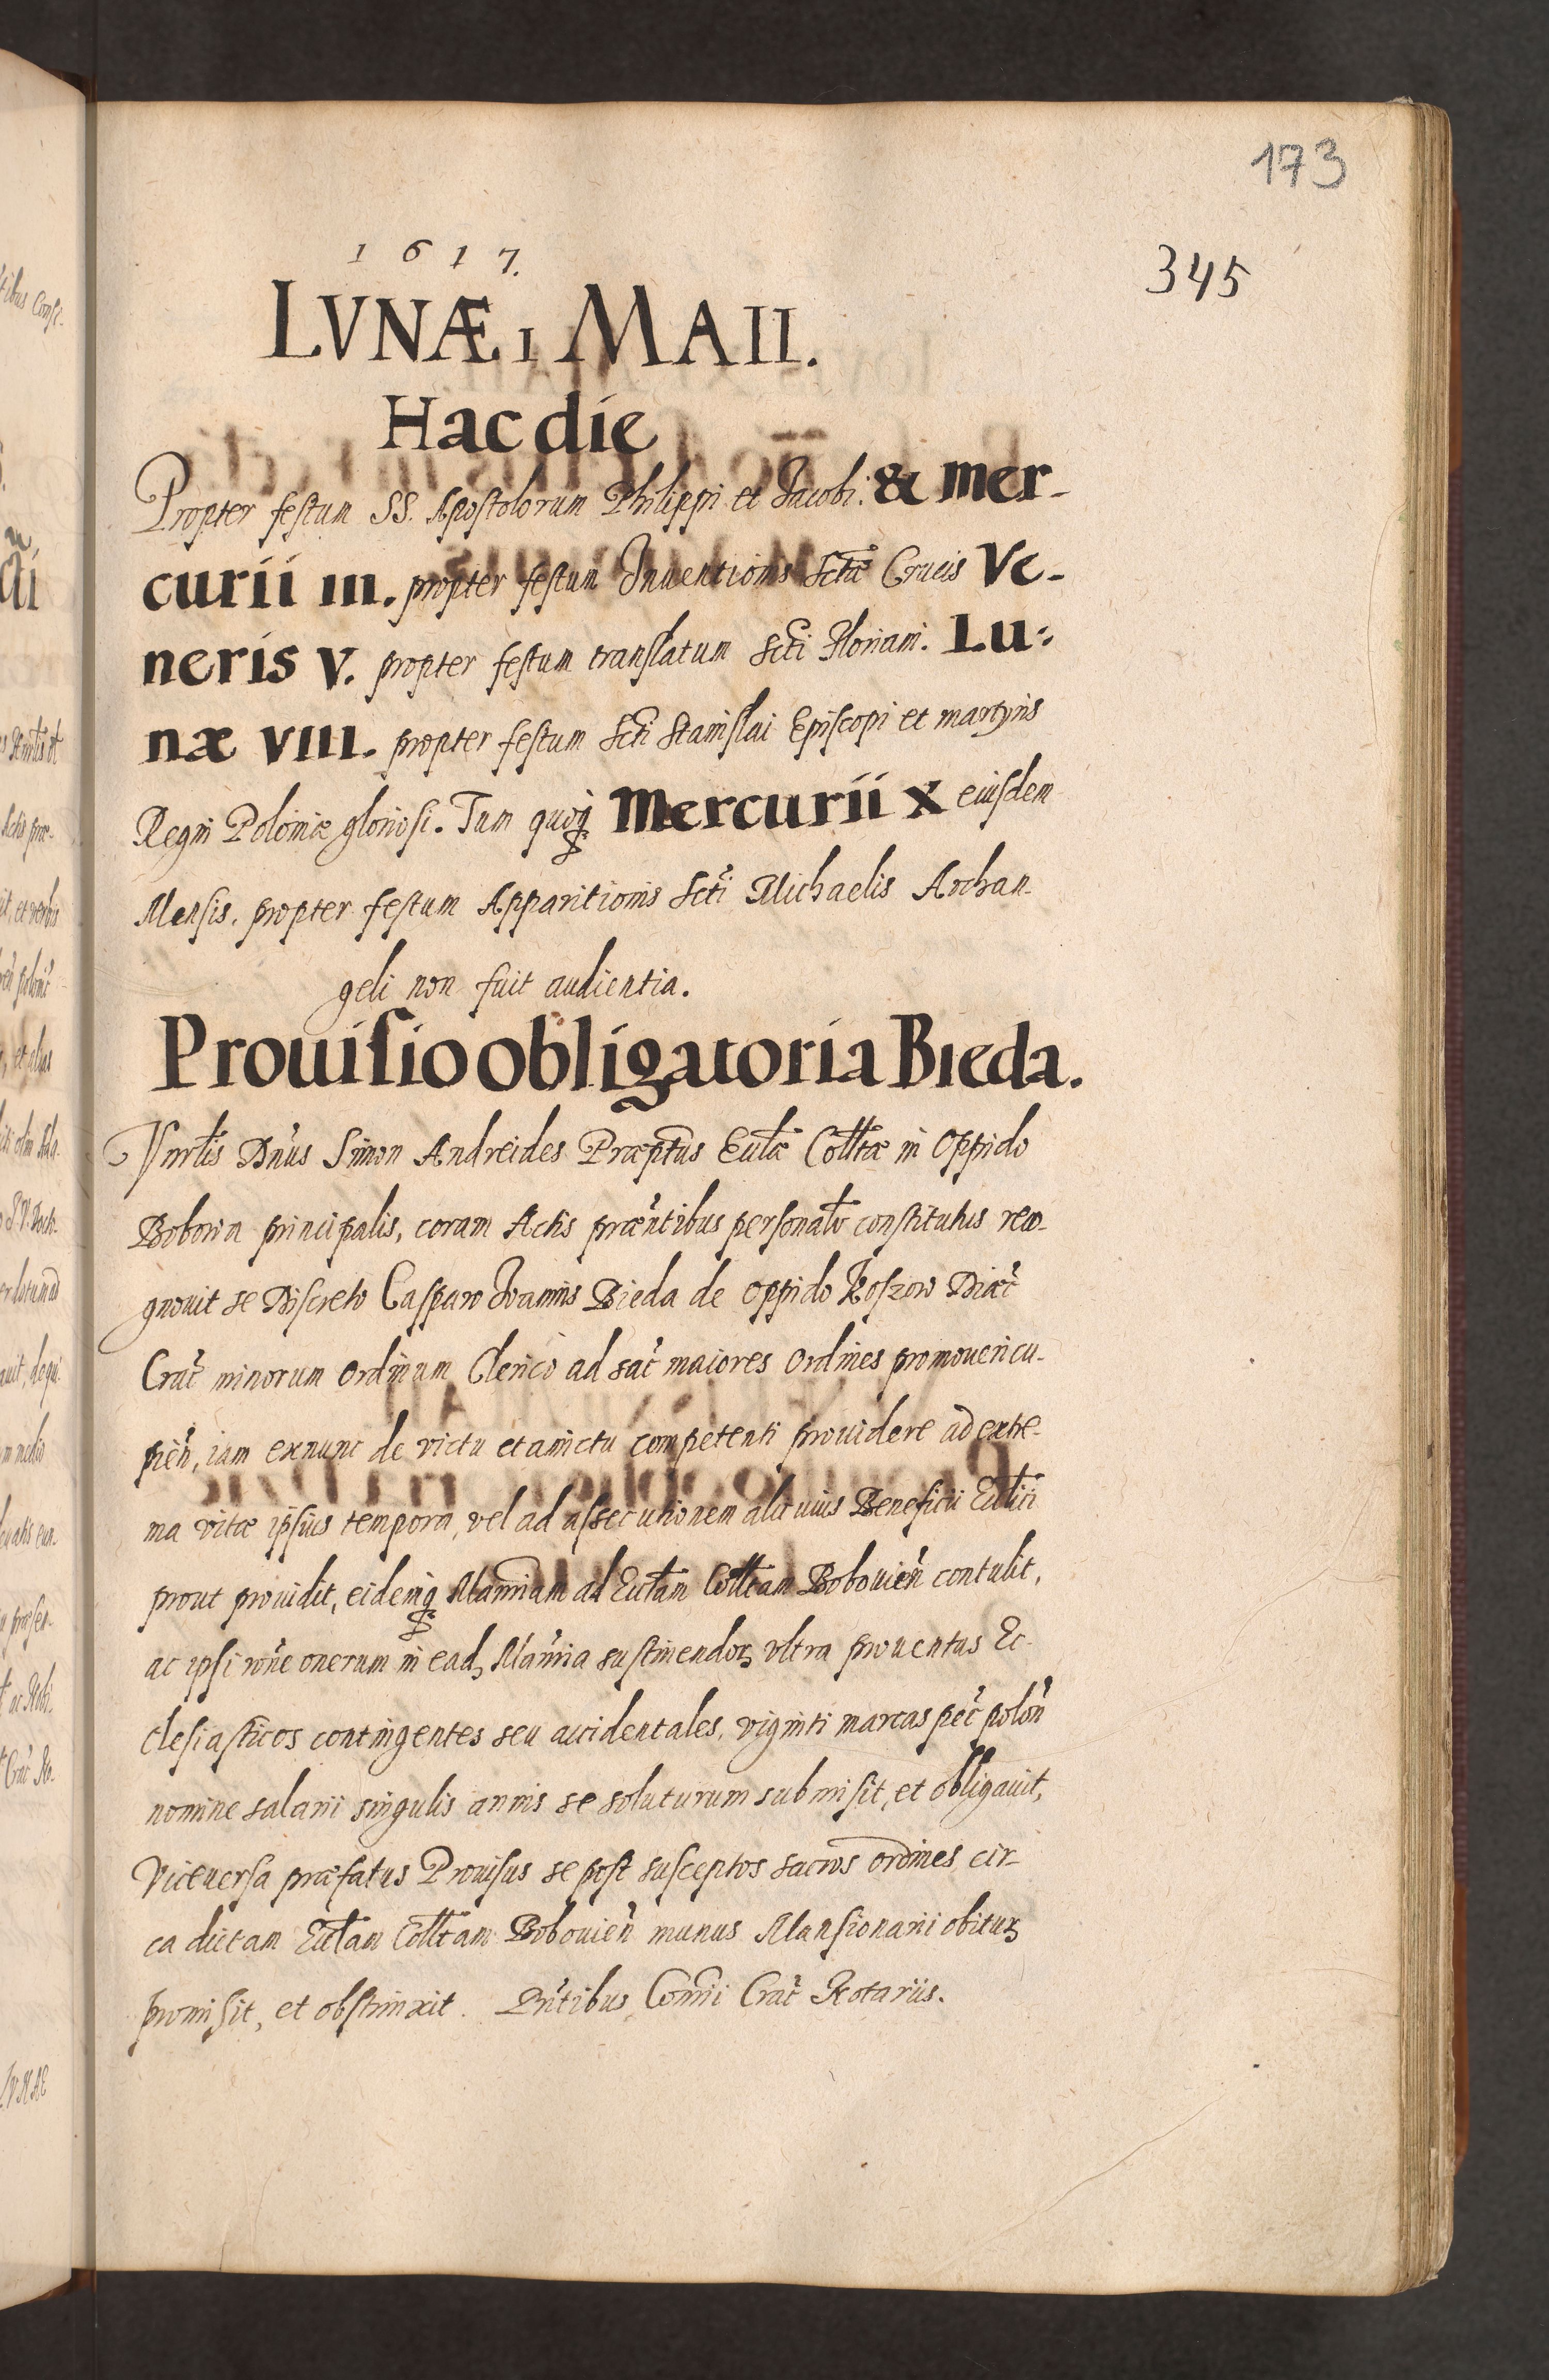 173
345
1617.
LVNÆ 1 MAII.
Hac die
Propter festum SS. Apostolorum Philippi et Jacobi. & Mer-
curii III. propter festum Inuentionis Sctæ Crucis Ve-
neris V. propter festum translatum Scti Floriani. Lu:
næ VIII. propter festum Scti Stanislai Episcopi et martyris
Regni Poloniæ gloriosi. Tum quoq₃ Mercurii X eiusdem
Mensis. propter festum Apparitionis Scti Michaelis Archan-
geli non fuit audientia.
Prouisio obligatoria Bieda.
Vnrlis Dnus Simon Andreides Præptus Eccłæ Collтæ in Oppido
Bobowa principalis, coram Actis præntibus personalr constitutus reco-
gnouit se Discreto Casparo Ioannis Bieda de oppido Koszow Diæc
Crac minorum ordinum Clerico ad sac maiores ordines promoueri cu-
pien, iam exnunc de victu et amictu competenti prouidere ad extre-
ma vitæ ipsius tempora, vel ad assecutionem alicuius Beneficii Eccłici
prout prouidit, eidemq₃ Manriam ad Eccłam Collтam Bobouien contulit,
ac ipsi rône onerum in ead₃ Manria sustinendor₃ vltra prouentus Ec-
clesiasticos contingentes seu accidentales, viginti marcas pec polon
nomine salarii singulis annis se soluturum submisit, et obligauit,
Viceuersa præfatus Prouisus se post susceptos sacros ordines cir-
ca dictam Eccłam Collтam Bobouien munus Mansionarii obitur₃
promisit, et obstrinxit. Pntibus Consrii Crac Notariis.